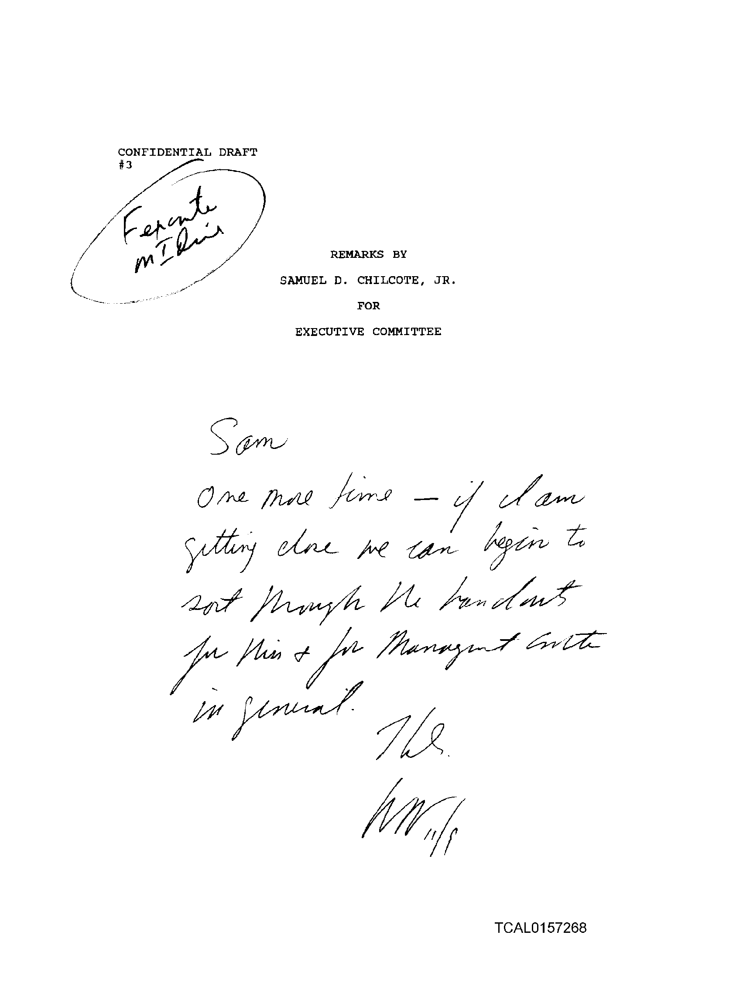 CONFIDENTIAL DRAFT
#3
REMARKS BY
SAMUEL D. CHILCOTE, JR.
FOR
EXECUTIVE COMMITTEE
Sam
One more time — if I am
getting close we can begin to
sort through the handouts
for this & for Managemt
in general.
11/9
TCAL0157268